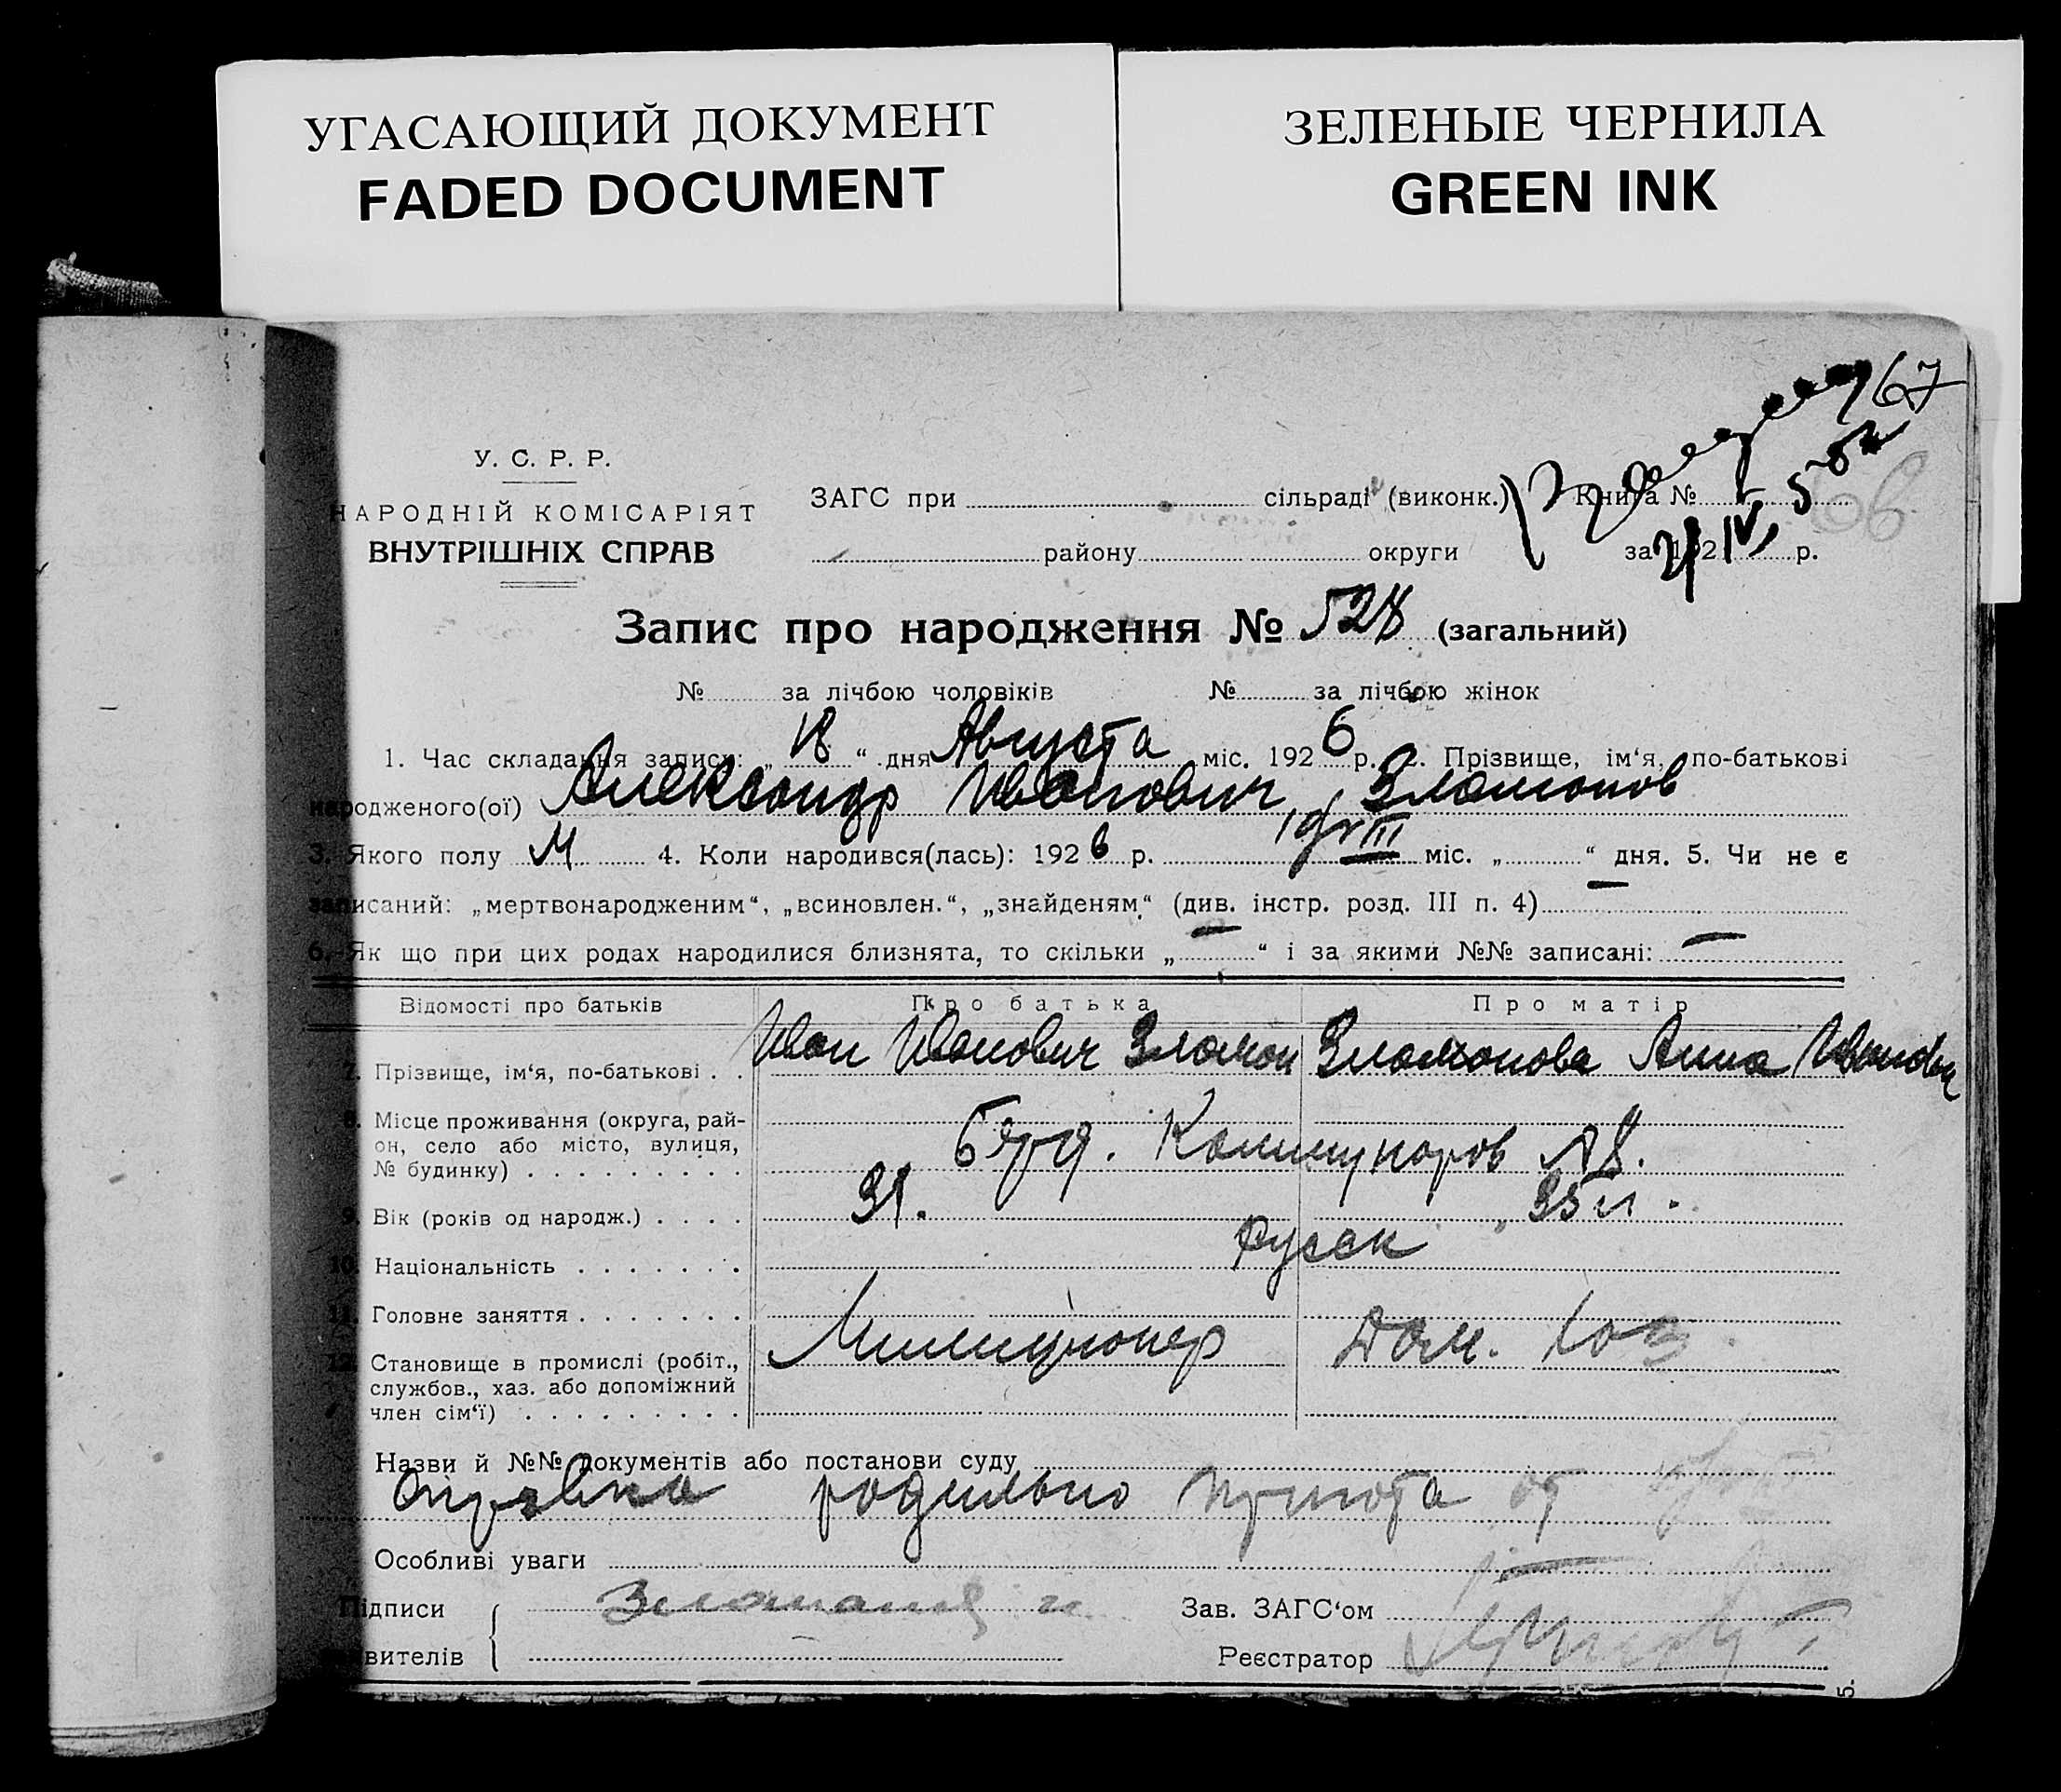 УГАСАЮЩИЙ ДОКУМЕНТ
FADED DOCUMENT
ЗЕЛЕНЫЕ ЧЕРНИЛА
GREEN INK
67
У. С. Р. Р.
НАРОДНІЙ КОМІСАРІЯТ
ВНУТРІШНІХ СПРАВ
ЗАГС при сільраді (виконк.) Книга №
району округи за 192 р.
Запис про народження № 528 (загальний)
№ за лічбою чоловіків № за лічбою жінок
1. Час складання запису: „ 18 “ дня Августа міс. 1926 р. 2. Прізвище, ім‘я, по-батькові
народженого(ої) Александр Иванович
3. Якого полу М 4. Коли народився(лась): 1926 р. міс. „ “ дня. 5. Чи не є
записаний: „мертвонародженим“, „всиновлен.“, „знайденям“ (див. інстр. розд. III п. 4) —
6. Як що при цих родах народилися близнята, то скільки „ — “ і за якими №№ записані: —
Відомості про батьків Про батька Про матір
7. Прізвище, ім‘я, по-батькові . . Иван Иванович Анна
8. Місце проживання (округа, рай-
он, село або місто, вулиця,
№ будинку) . . . . . . . . Коммунаров
9. Вік (років од народж.) . . . . 31. 35 л.
10. Національність . . . . . . . русск
11. Головне заняття . . . . . . .
12. Становище в промислі (робіт., Милиционер Дом. хоз.
службов., хаз. або допоміжний
член сім‘ї) . . . . . . . . .
Назви й №№ документів або постанови суду
справка родильно приюта от
Особливі уваги
Підписи Зав. ЗАГС‘ом
вителів Реєстратор